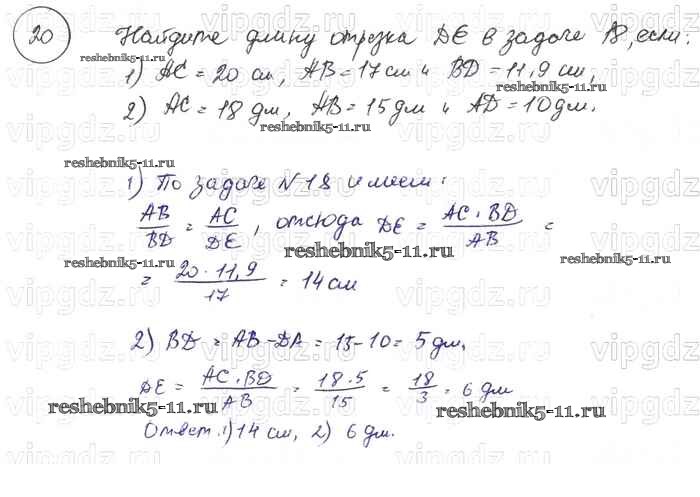 20 Найдите длину отрезка DE в задаче 18, если:
1) AC = 20 см, AB = 17 см и BD = 11,9 см,
2) AC = 18 дм, AB = 15 дм и AD = 10 дм.
1) По задаче №18 имеем:
AB/BD = AC/DE, отсюда DE = AC·BD/AB =
= 20·11,9/17 = 14 см
2) BD = AB - DA = 15-10 = 5 дм,
DE = AC·BD/AB = 18·5/15 = 18/3 = 6 дм
Ответ: 1) 14 см, 2) 6 дм.
reshebnik5-11.ru
vipgdz.ru